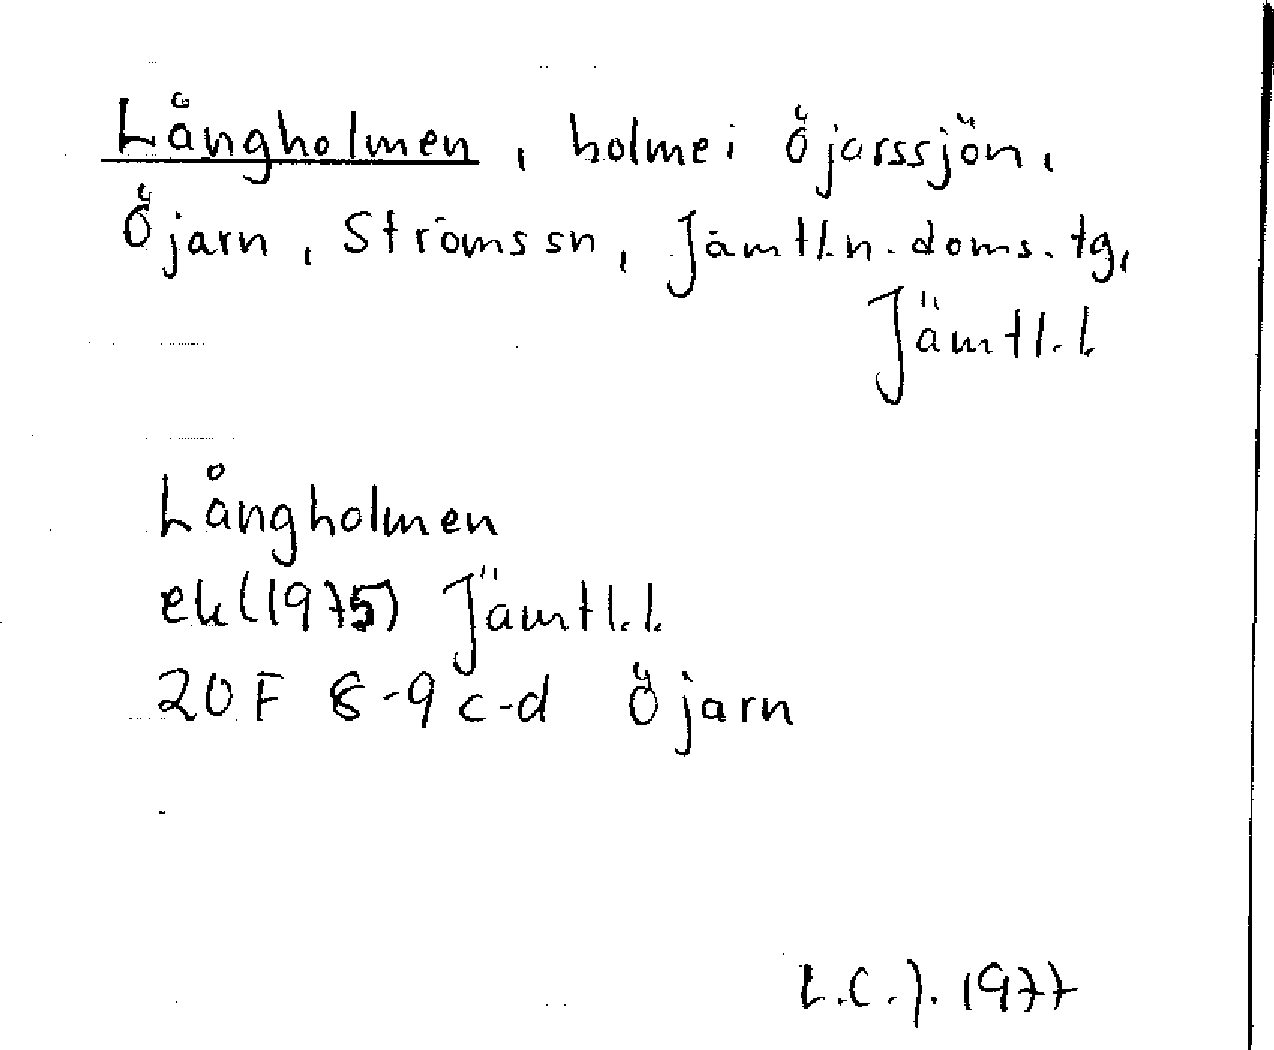 Långholmen, holme i Öjarssjön,
Öjarn, Ströms sn, Jämtl.n. doms. tg,
Jämtl. l.
Långholmen
ek (1975) Jämtl. l.
20 F 8-9 c-d Öjarn
L.C.J. 1977